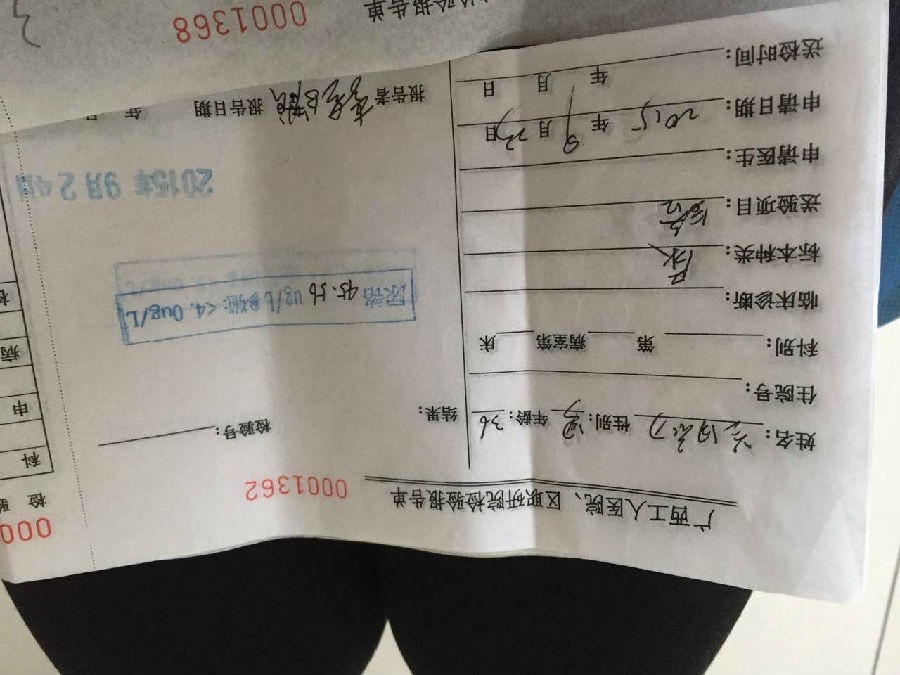 检验报告单
0001368
广西工人医院、区职研院检验报告单
0001362
姓名： 性别：男 年龄：36
住院号：
科别： 第 病室第 床
临床诊断：
标本种类：尿
送验项目：
申请医生：
申请日期：2015年9月23日
送检时间： 年 月 日
结果：
检验号：
尿镉 45.56 ug/L 参考值：<4.0ug/L
2015年9月24日
报告者 报告日期 年 月 日
000
检验
科
申
病